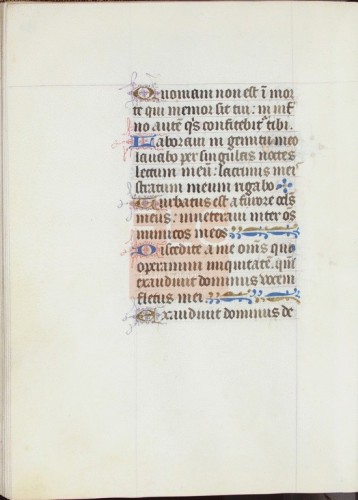 Quoniam non est ī mor
te qui memor sit tui: in inf̄
no autē q̄s confitebit᷑ tibi.
Laboraui in gemitu meo
lauabo per singulas noctes
lectum meū: lacrimis meis
stratum meum rigabo
Turbatus est a furore ocl̄s
meus: inueteraui inter os
inimicos meos
Discedite a me om̄s qui
operamini iniquitatē: qm̄
exaudiuit dominus vocem
fletus mei
Exaudiuit dominus de